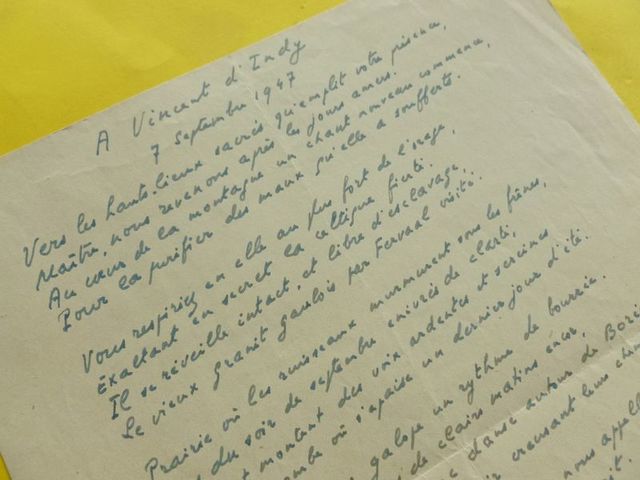 A Vincent d'Indy
7 Septembre 1947
Vers les hauts-lieux sacrés qu'emplit votre présence,
Maître, nous revenons après les jours amers.
Au cœur de la montagne un chant nouveau commence,
Pour la purifier des maux qu'elle a soufferts.
Vous respiriez en elle au plus fort de l'orage,
Exaltant en secret la celtique fierté.
Il se réveille intact, et libre d'esclavage,
Le vieux granit gaulois par Fervaal visité.
Prairie où les ruisseaux murmurent sous les frênes,
du soir de septembre enivrés de clarté,
montent des voix ardentes et sereines
où s'apaise un dernier jour d'été.
galope un rythme de bourrée.
de clairs matins encor,
danse autour de
creusant leurs
nous